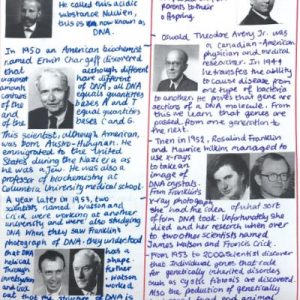 He called this acidic
substance Nuclein,
this is now known as
DNA.
In 1950 an American biochemist
named Erwin Chargaff discovered
that although different
amounts have different
of DNA, all DNA
of the equals quantities
bases A and T
and equal quantities of
bases C and G
This scientist, although American,
was born Austro-
He
emigrated to the United
States during the Nazi era as
he was a Jew. He was also a
professor of biochemistry at
Columbia University medical school.
A year later in 1951, two
scientists named Watson and
Crick were working at another
university and were also studying
DNA. When they saw Franklin's
photograph of DNA, they understood
that DNA has a
shape
Through further
Watson
investigation worked
out that the structure of DNA is
parents to their
offspring.
Oswald Theodore Avery Jr. was
a Canadian-American
physician and medical
researcher. In 1944
he transfers the ability
to cause disease from
one type of bacteria
to another. He proves that genes are
sections of a DNA molecule. From
this we learn that genes are
passed from one generation to
the next.
Then in 1952, Rosalind Franklin
and Maurice Wilkins managed to
use x-rays
to take an
image of
DNA crystals.
From Franklin's
x-ray photograph
she had the idea of what sort
of form DNA took. Unfortunately she
died and her research went over
to two other scientists named
James Watson and Francis Crick.
From 1953 to 2000 scientist discover
the individual genes that code
for genetically inherited disorders,
such as cystic fibrosis are discovered.
Also the production of genetically